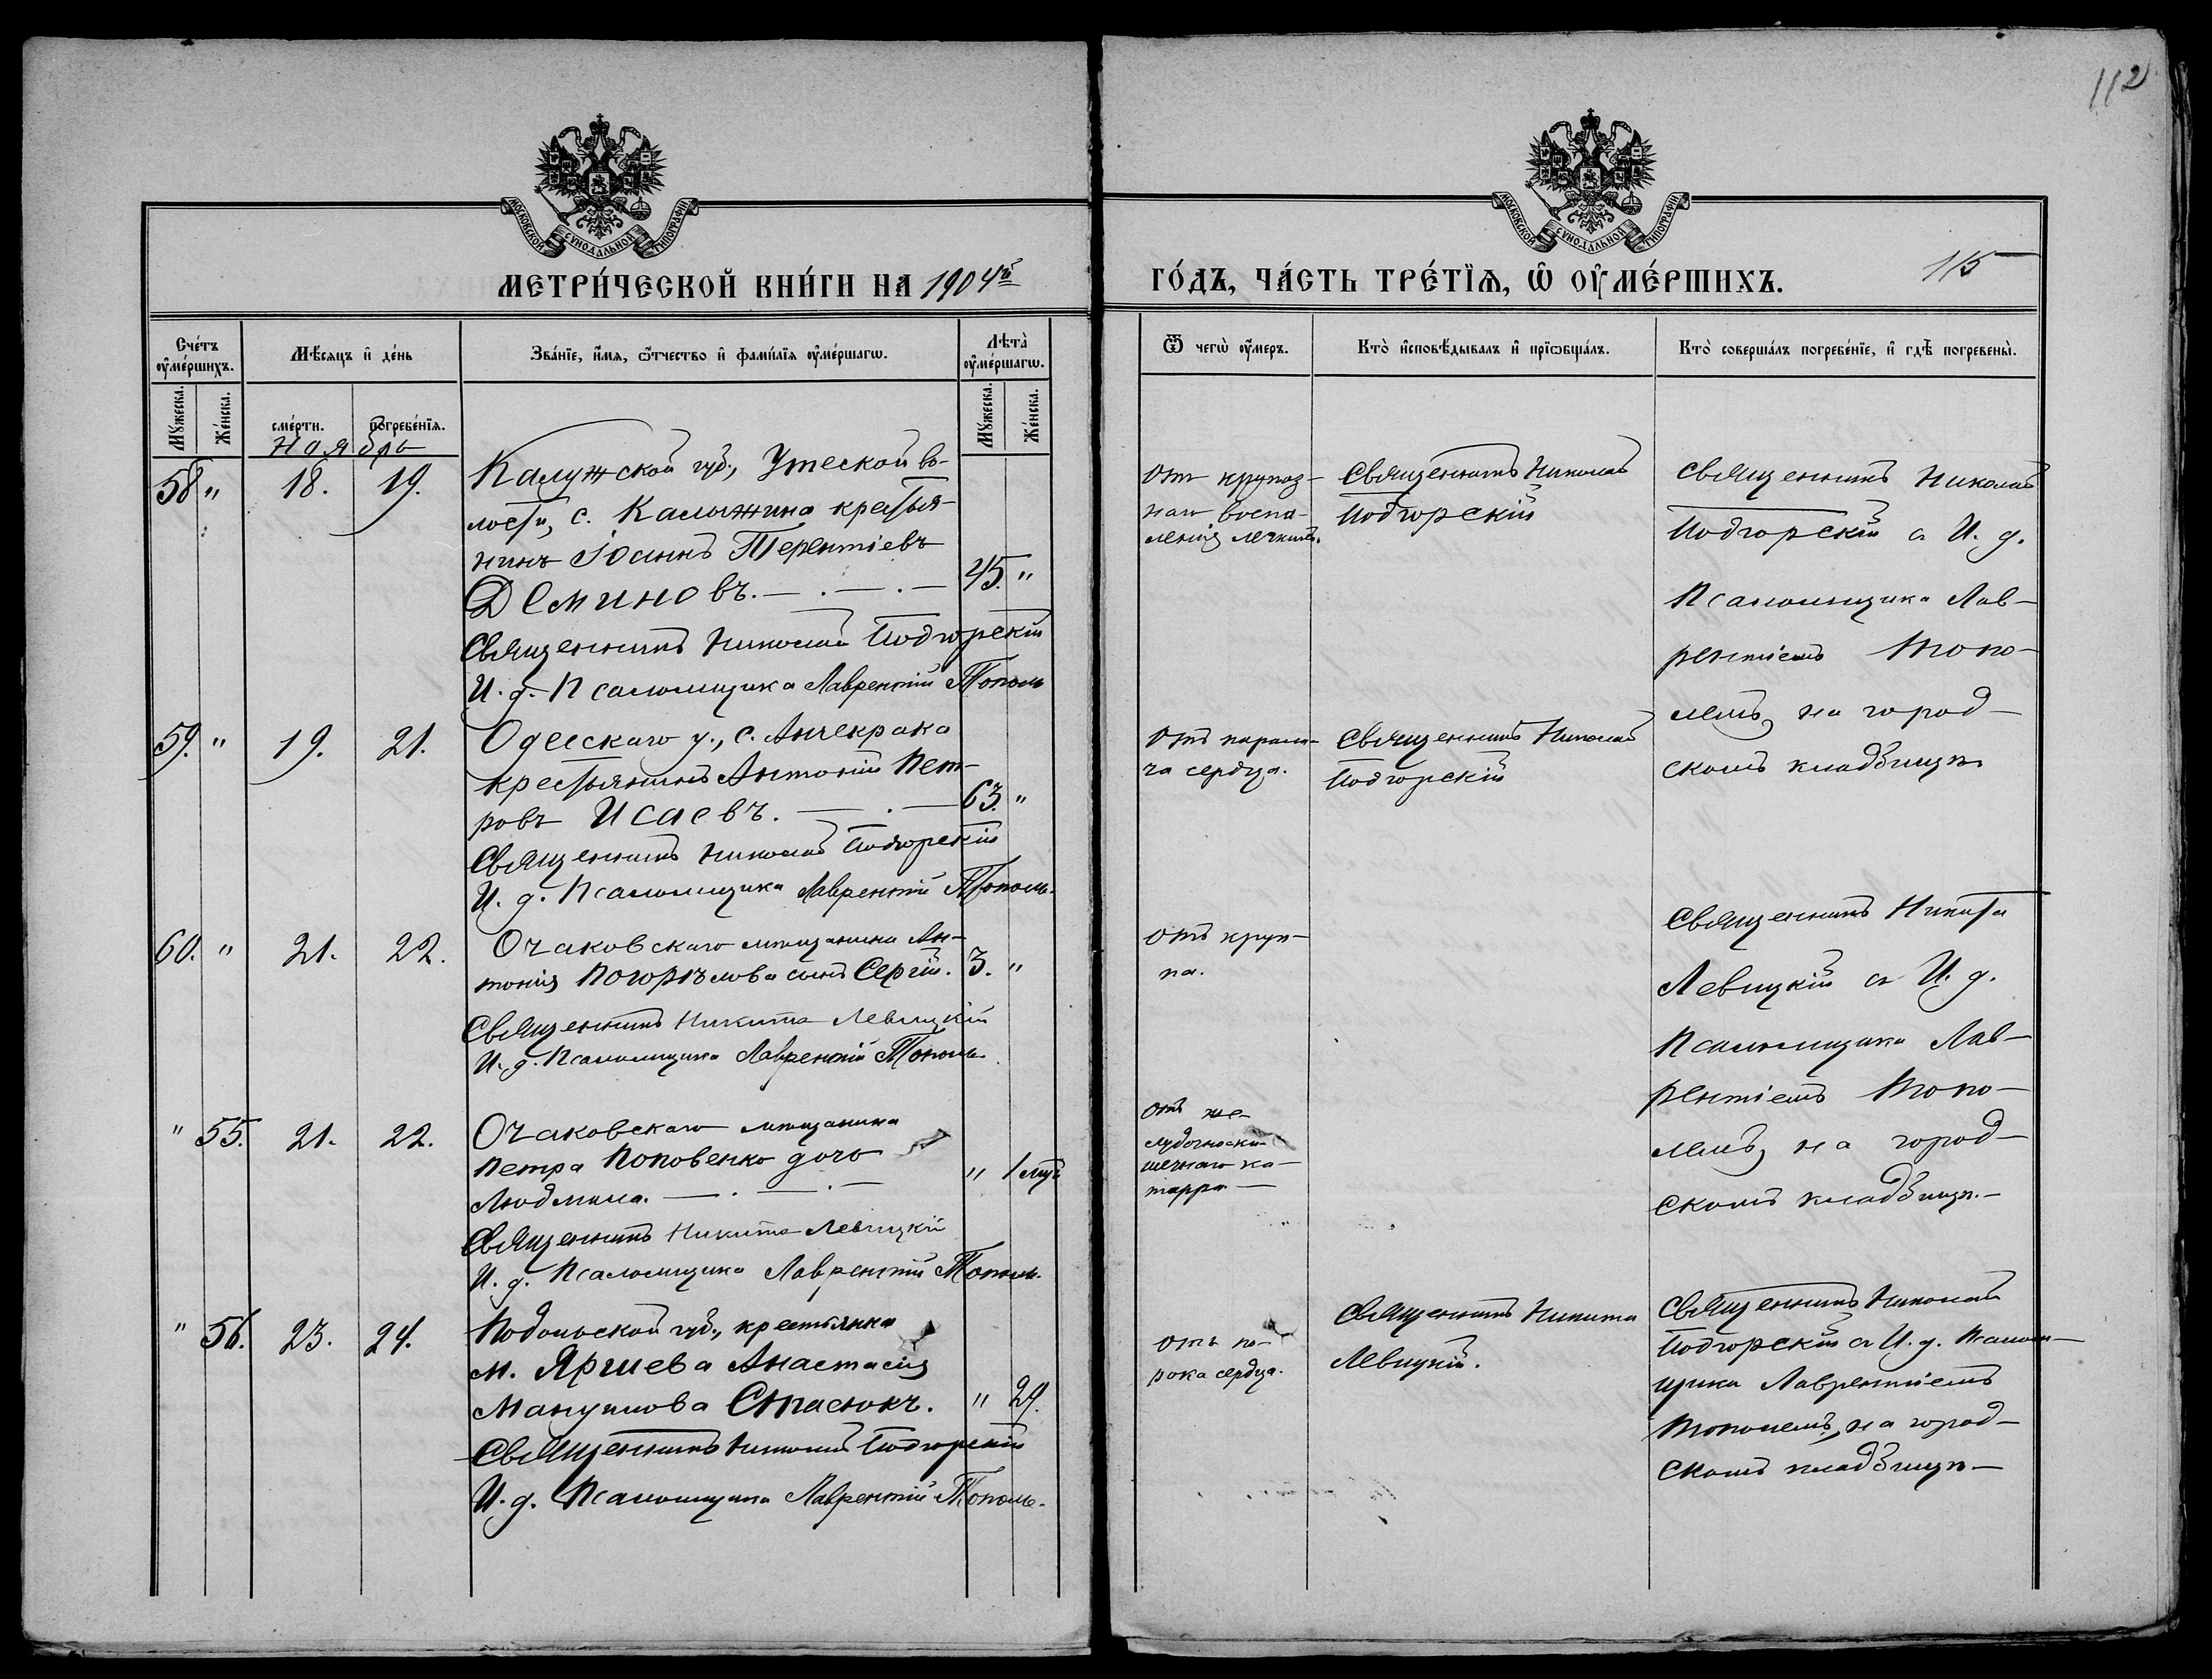 112
МОСКОВСКОЙ СѴНОДАЛЬНОЙ ТИПОГРАФІИ
МОСКОВСКОЙ СѴНОДАЛЬНОЙ ТИПОГРАФІИ
МЕТРИ́ЧЕСКОЙ КНИ́ГИ НА 1904й
ГО́ДЪ, ЧА́СТЬ ТРЕ́ТЇѦ, Ѡ ОУ҆МЕ́РШИХЪ.
115
Сче́тъ оу҆ме́ршихъ.
Мѣ́сѧцъ и҆ де́нь
Зва́нїе, и҆́мѧ, ѻ҆́тчество и҆ фами́лїѧ оу҆ме́ршагѡ.
Лѣ́та оу҆ме́ршагѡ.
Ѿ чегѡ̀ оу҆́меръ.
Кто̀ и҆сповѣ́дывалъ и҆ прїѡбща́лъ.
Кто̀ соверша́лъ погребе́нїе, и҆ гдѣ̀ погребены̀.
Мꙋ́жеска.
Же́нска.
сме́рти.
погребе́нїѧ.
Мꙋ́жеска.
Же́нска.
Ноябрь
58 " 18. 19.
Калужской губ., Утеской во-
лости, с. Калюжина крестья-
нинъ Іоаннъ Терентіевъ
Деминовъ. 45. "
Священникъ Николай Подгорскій
И. д. Псаломщика Лаврентій Тополь
От крупоз-
наго воспа-
ленія легкихъ.
Священникъ Николай
Подгорскій
Священникъ Николай
Подгорскій съ И. д.
Псаломщика Лав-
рентіемъ Топо-
лемъ, на город-
скомъ кладбищѣ
59. " 19. 21.
Одесскаго у., с. Анчекрака
крестьянинъ Антоній Пет-
ровъ Исаевъ. 63. "
Священникъ Николай Подгорскій
И. д. Псаломщика Лаврентій Тополь.
Отъ парали-
ча сердца.
Священникъ Николай
Подгорскій
60. " 21. 22.
Очаковскаго мѣщанина Ан-
тонія Погорѣлова сынъ Сергій. 3. "
Священникъ Никита Левицкій
И. д. Псаломщика Лаврентій Тополь
Отъ круп-
па.
Священникъ Никита
Левицкій съ И. д.
Псаломщика Лав-
рентіемъ Топо-
лемъ, на город-
скомъ кладбищѣ.
" 55. 21. 22.
Очаковскаго мѣщанина
Петра Поповенко дочь
Людмила. " 1 мѣс
Священникъ Никита Левицкій
И. д. Псаломщика Лаврентій Тополь.
Отъ же-
лудочно-ки-
шечнаго ка-
тарра.
" 56. 23. 24.
Подольской губ., крестьянка
м. Яришева Анастасія
Мануилова Стасюкъ. " 29.
Священникъ Николай Подгорскій
И. д. Псаломщика Лаврентій Тополь.
Отъ по-
рока сердца.
Священникъ Никита
Левицкій.
Священникъ Николай
Подгорскій съ И. д. Псалом-
щика Лаврентіемъ
Тополемъ, на город-
скомъ кладбищѣ